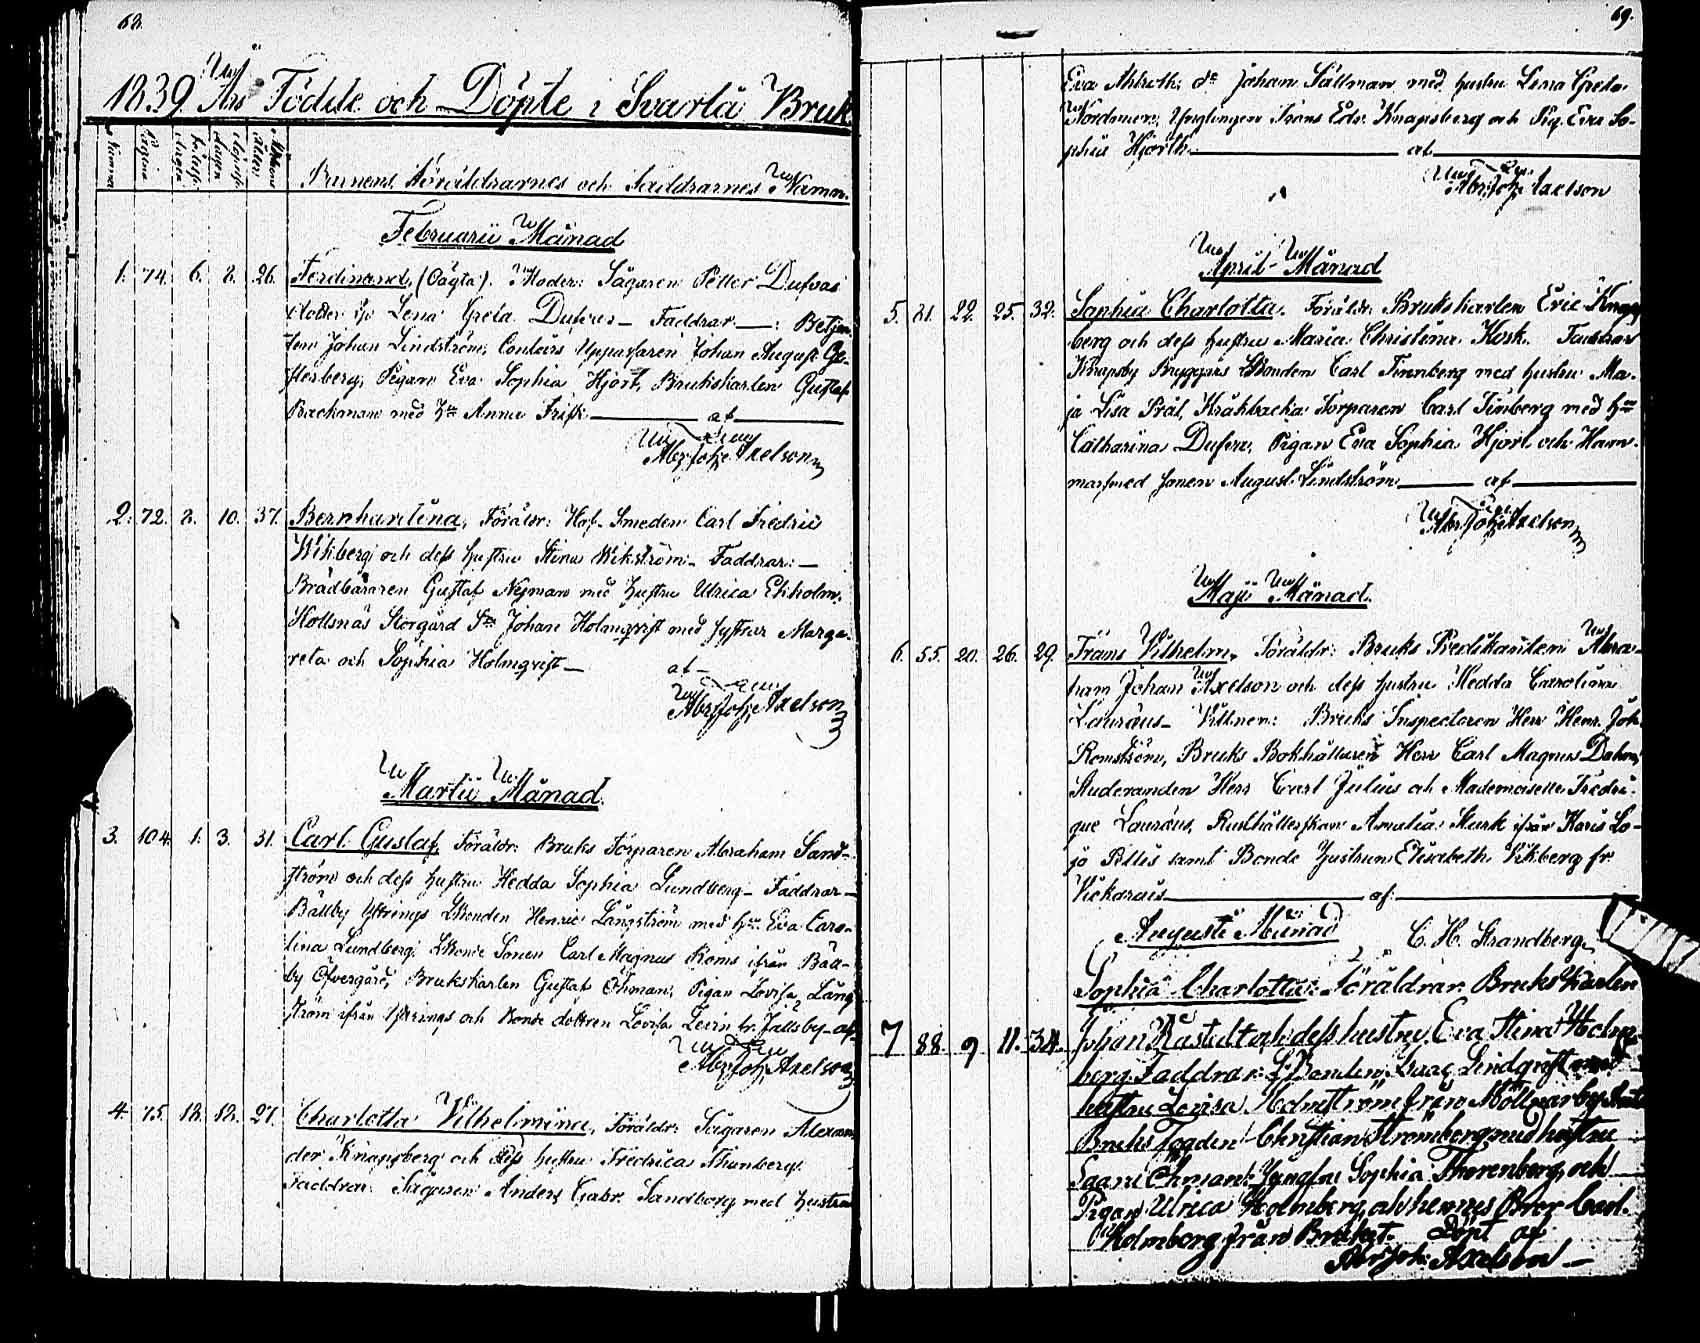 68.
1839 Års Födde och Döpte i Svartå Bruk
Barnens, Föräldrarnes och Faddrarnes Namn.
Februarii Månad
1. 74. 6. 8. 26. Ferdinand, (Oägta). Moder: Sågaren Petter Dufvas
dotter Lena Greta Dufva – Faddrar: Betjen-
ten Johan Lindström, Contoirs Uppassaren Johan August
Pigan Eva Sophia Hjort, Brukskarlen Gustaf
Backman med Hu Anna Frisk af
Abr Joh Axelson
2. 72. 8. 10. 37. Bernhardina, Föräldr: Hof-Smeden Carl Fredric
Wikberg och dess hustru Stina Wikström – Faddrar: –
Brädbäraren Gustaf Nyman med Hustru Ulrica Ekholm,
Storgård Johan Holmqvist med systrar Marga-
reta och Sophia Holmqvist – af –
Abr Joh Axelson
Martii Månad.
3. 104. 1. 3. 31. Carl Gustaf, Föräldr: Bruks Torparen Abraham Sand-
ström och dess hustru Hedda Sophia Lundberg – Faddrar –
Bällby Ytterings Bonden Henric Långström med Hu Eva Caro-
lina Lundberg, Bonde Sonen Carl Magnus Roms ifrån Bäll-
by Öfvergård, Brukskarlen Gustaf Öhman, Pigan Lovisa Lång-
ström ifrån Ytterings och Bonde dottren Lovisa Levin fr. Jällsby – af
Abr Joh Axelson
4. 75. 12. 12. 27. Charlotta Vilhelmina, Föräldr: Sågaren Alexan-
der Knapsberg och dess hustru Fredrica Thunberg.
Faddrar: Sågaren Anders Gabr. Sandborg med hustru
69.
Eva Ahlroth; Johan Sällman med hustru Lena Greta
Nordman, Ynglingen Frans Edv. Knapsberg och Pig. Eva So-
phia Hjorth af
Abr Joh Axelson
April Månad
5. 21. 22. 25. 32. Sophia Charlotta. Föräldr: Brukskarlen Eric Knaps-
berg och dess hustru Maria Christina Kosk. Faddrar
Knapsby Bryggars Bonden Carl Finnberg med hustru Ma-
ja Lisa Präl, Kråkbacka Torparen Carl Finberg med Hu
Catharina Dufva, Pigan Eva Sophia Hjort och Ham-
marsmed Sonen August Lindström af
Abr Joh Axelson
Maji Månad.
6. 55. 20. 26. 29. Frans Vilhelm, Föräldr: Bruks Predikanten Abra-
ham Johan Axelson och dess hustru Hedda Carolina
Lauræus – Vittnen: Bruks Inspectoren Herr Henr. Joh.
Romström, Bruks Bokhållaren Herr Carl Magnus
Studeranden Herr Carl Julius och Mademoiselle Fredri-
que Lauræus, Rusthållerskan Amalia Sturk ifrån Karis Lo-
jo Pellis samt Bonde Hustrun Elisabeth Vikberg fr
af:
C. H. Strandberg
Augusti Månad
Sophia Charlotta: Föräldrar Bruks Karlen
7 88. 9 11. 34. Johan Rastedt och dess hustru Eva Stina Holm-
berg. Faddrar: Bonden Isaac Lindqvist med
hustru Lovisa Holmström från Mollnarby
Bruks Fogden Christian Strömberg med hustru
Öhman, Jungfru Sophia Thorenberg, och
Pigan Ulrica Holmberg och hennes Bror Carl
Holmberg från Bruket. Döpt af
Abr Joh. Axelson –